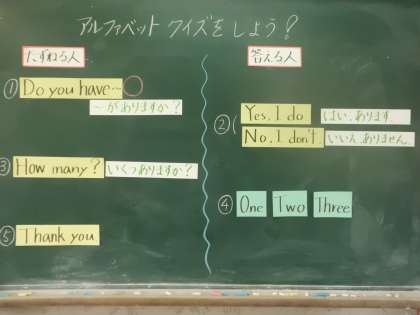 アルファベット クイズをしよう?
たずねる人
① Do you have~ ○
~がありますか?
③ How many? いくつありますか?
⑤ Thank you
答える人
② ( Yes, I do. はい、あります。
No, I don't. いいえ、ありません。
④ One Two Three